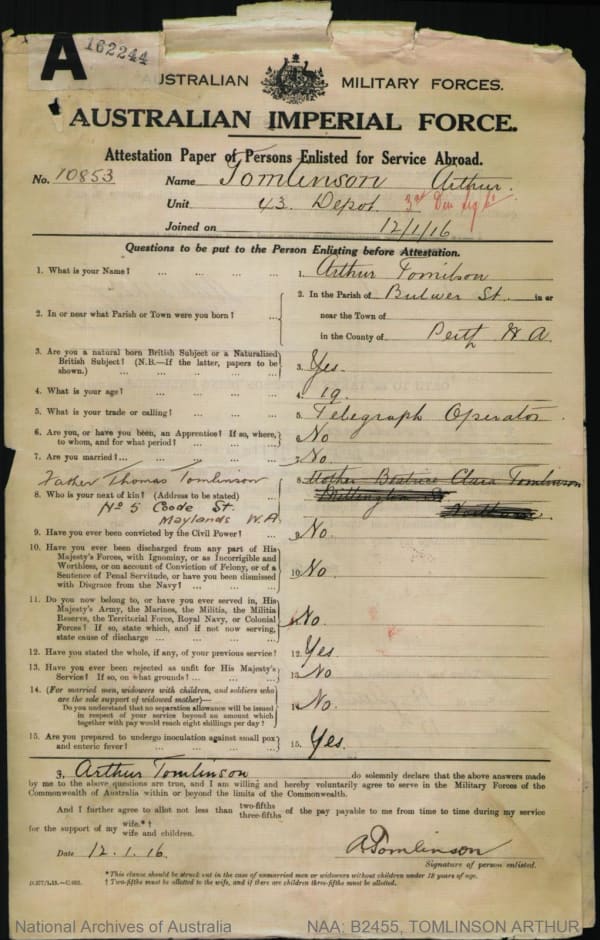 A
162244
AUSTRALIAN MILITARY FORCES.
AUSTRALIAN IMPERIAL FORCE.
Attestation Paper of Persons Enlisted for Service Abroad.
No. 10853 Name Tomlinson Arthur.
Unit 43 Depot. 3rd Div Sig Co
Joined on 12/1/16
Questions to be put to the Person Enlisting before Attestation.
1. What is your Name? ... ... ... 1. Arthur Tomilson
2. In or near what Parish or Town were you born? ... 2. In the Parish of Bulwer St. in or
near the Town of
in the County of Perth W A.
3. Are you a natural born British Subject or a Naturalized
British Subject? (N.B.—If the latter, papers to be
shown.) ... ... ... ... 3. Yes.
4. What is your age? ... ... ... 4. 19.
5. What is your trade or calling? ... ... ... 5. Telegraph Operator.
6. Are you, or have you been, an Apprentice? If so, where,
to whom, and for what period? ... ... ... 6. No
7. Are you married?... ... ... ... 7. No.
Father Thomas Tomlinson 8. Mother Beatrice Clara Tomlinson
8. Who is your next of kin? (Address to be stated) ...
No 5 Coode St.
Maylands W.A.
9. Have you ever been convicted by the Civil Power? ... 9. No.
10. Have you ever been discharged from any part of His
Majesty's Forces, with Ignominy, or as Incorrigible and
Worthless, or on account of Conviction of Felony, or of a
Sentence of Penal Servitude, or have you been dismissed
with Disgrace from the Navy? ... ... ... 10. No.
11. Do you now belong to, or have you ever served in, His
Majesty's Army, the Marines, the Militia, the Militia
Reserve, the Territorial Force, Royal Navy, or Colonial
Forces? If so, state which, and if not now serving,
state cause of discharge ... ... ... No.
12. Have you stated the whole, if any, of your previous service? 12. Yes.
13. Have you ever been rejected as unfit for His Majesty's
Service? If so, on what grounds? ... ... ... 13. No
14. (For married men, widowers with children, and soldiers who
are the sole support of widowed mother)—
Do you understand that no separation allowance will be issued
in respect of your service beyond an amount which
together with pay would reach eight shillings per day? 14. No.
15. Are you prepared to undergo inoculation against small pox
and enteric fever? ... ... ... ... 15. Yes.
I, Arthur Tomlinson do solemnly declare that the above answers made
by me to the above questions are true, and I am willing and hereby voluntarily agree to serve in the Military Forces of the
Commonwealth of Australia within or beyond the limits of the Commonwealth.
And I further agree to allot not less than two-fifths three-fifths of the pay payable to me from time to time during my service
for the support of my wife.*† wife and children.
Date 12.1.16. A Tomlinson
Signature of person enlisted.
* This clause should be struck out in the case of unmarried men or widowers without children under 18 years of age.
† Two-fifths must be allotted to the wife, and if there are children three-fifths must be allotted.
National Archives of Australia NAA: B2455, TOMLINSON ARTHUR